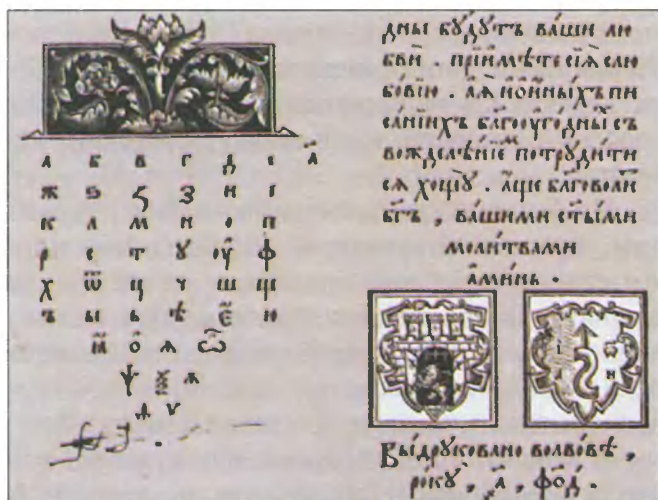 а б в г д е а҃
ж ѕ ꙃ з и і
к л м н о п
р с т ꙋ оу ф
х ѿ ц ч ш щ
ъ ы ь ѣ є ю
ꙗ о ѧ ѽ
ѱ ѯ ѫ
ѵ
дны бꙋ́дꙋтъ ва́ши лю
бви̂ . прїимѣ́те сїѧ̀ с лю
бо́вїю . а҆ ѧ҆̀ и҆ ѡ҆и́ныхъ пи
са́нїихъ бл҃гоꙋго́дныⷯ съ
вожделѣ́нїеⷨ потрꙋди́ти
сѧ хощꙋ̀ . а҆́ще бл҃говоли́ⷮ
бг҃ъ . ва́шими ст҃ы́ми
моли́твами
а҆ми́нь .
І Ѡ
А Н
Вы́дрꙋковано во львовѣ ,
рокꙋ , ҂а҃ , фо҃д .